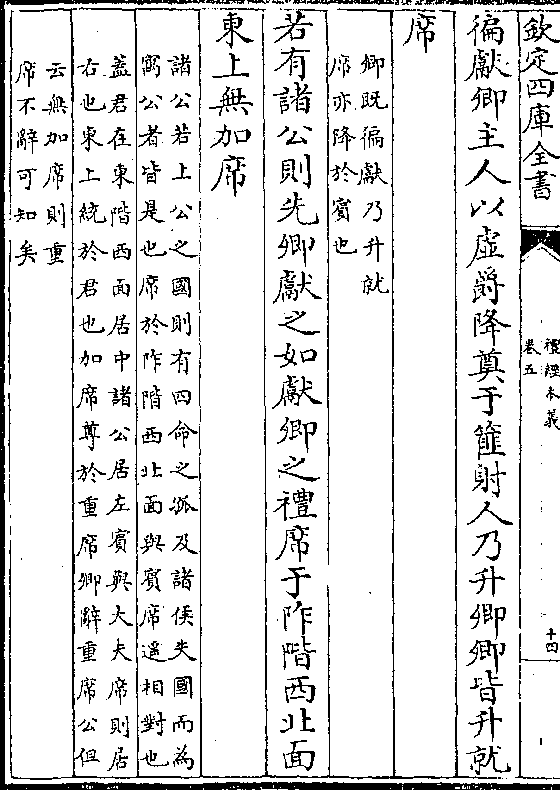 欽定四庫全書
禮經本義
卷五
十四
徧獻卿主人以虛爵降奠于篚射人乃升卿卿皆升就
席
卿既徧獻乃升就
席亦降於賓也
若有諸公則先卿獻之如獻卿之禮席于阼階西北面
東上無加席
諸公若上公之國則有四命之孤及諸侯失國而為
寓公者皆是也席於阼階西北面與賓席遥相對也
蓋君在東階西面居中諸公居左賓與大夫席則居
右也東上統於君也加席尊於重席卿辭重席公但
云無加席則重
席不辭可知矣